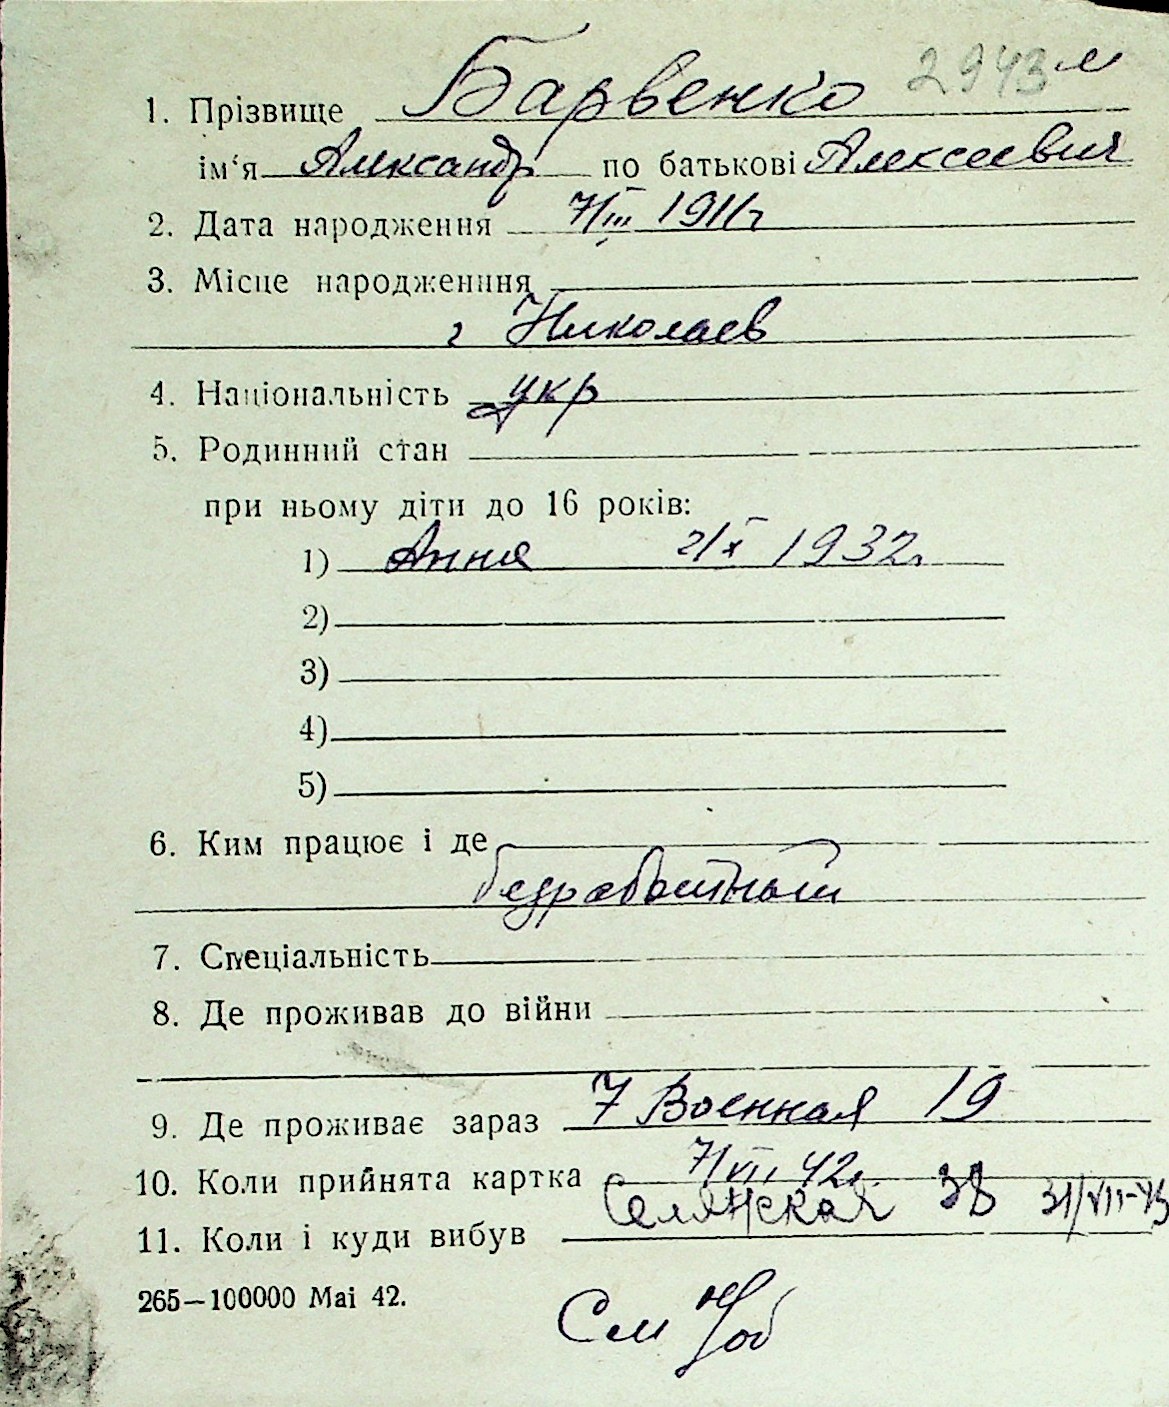 2943 м
1. Прізвище Барвенко
ім'я Александр по батькові Алексеевич
2. Дата народження 7/III 1911г
3. Місце народженння
г Николаев
4. Національність укр
5. Родинний стан
при ньому діти до 16 років:
1) Анна 2/X 1932г.
2)
3)
4)
5)
6. Ким працює і де
безработный
7. Спеціальність
8. Де проживав до війни
9. Де проживає зараз 7 Военная 19
10. Коли прийнята картка 7/VII 42г.
Селянская 38 31/VII-43
11. Коли і куди вибув
265—100000 Mai 42.
См